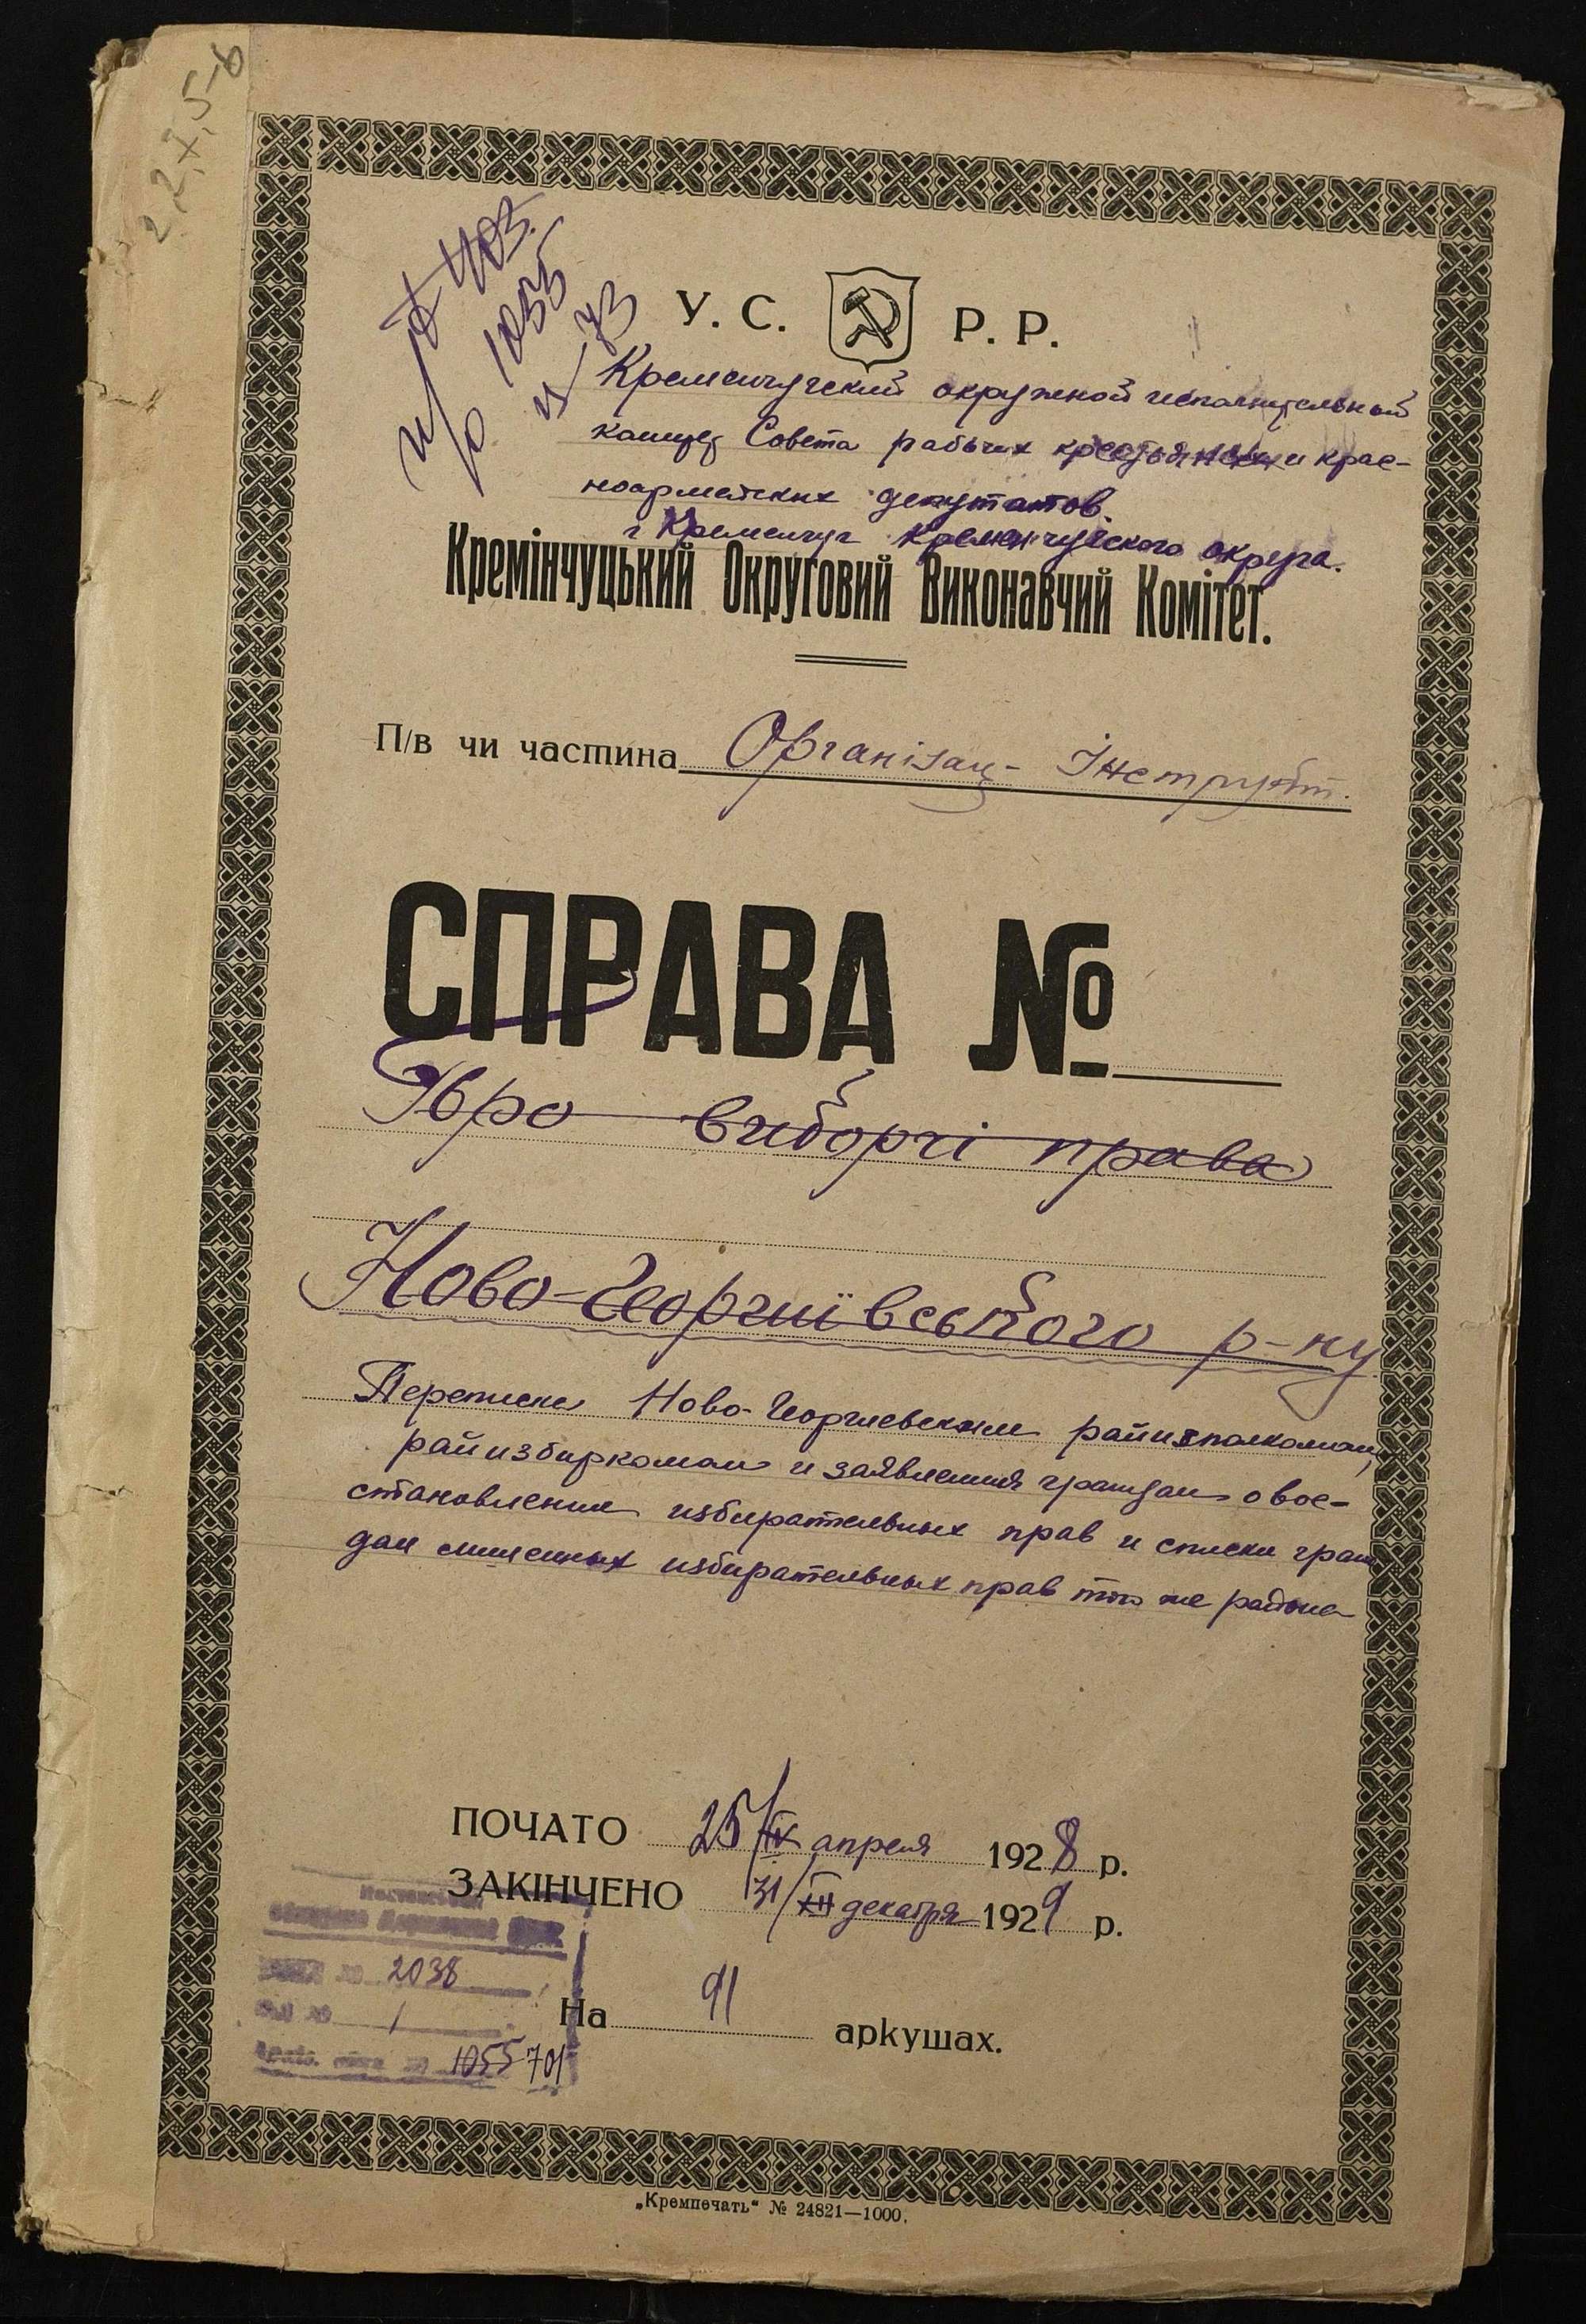 22 х 5-б
403.
1055
и-73
У. С. Р. Р.
Кременчугский окружной исполнительный
комитет Совета рабочих крестьянских и крас-
ноармейских депутатов.
г Кременчуг Кременчугского округа.
Кремінчуцький Округовий Виконавчий Комітет.
П/в чи частина Організац- Інструкт.
СПРАВА №
Про виборчі права
Ново-Георгиївського р-ну
Переписка Ново-Георгиевским райисполкомом,
райизбиркомом и заявления граждан о вос-
становлении избирательных прав и списки граж
дан лишенных избирательных прав того же района
ПОЧАТО 25/IV апреля 1928 р.
ЗАКІНЧЕНО 31/XII декабря 1929 р.
2038
1
На 91 аркушах.
1055 701
„Кремпечать“ № 24821—1000.